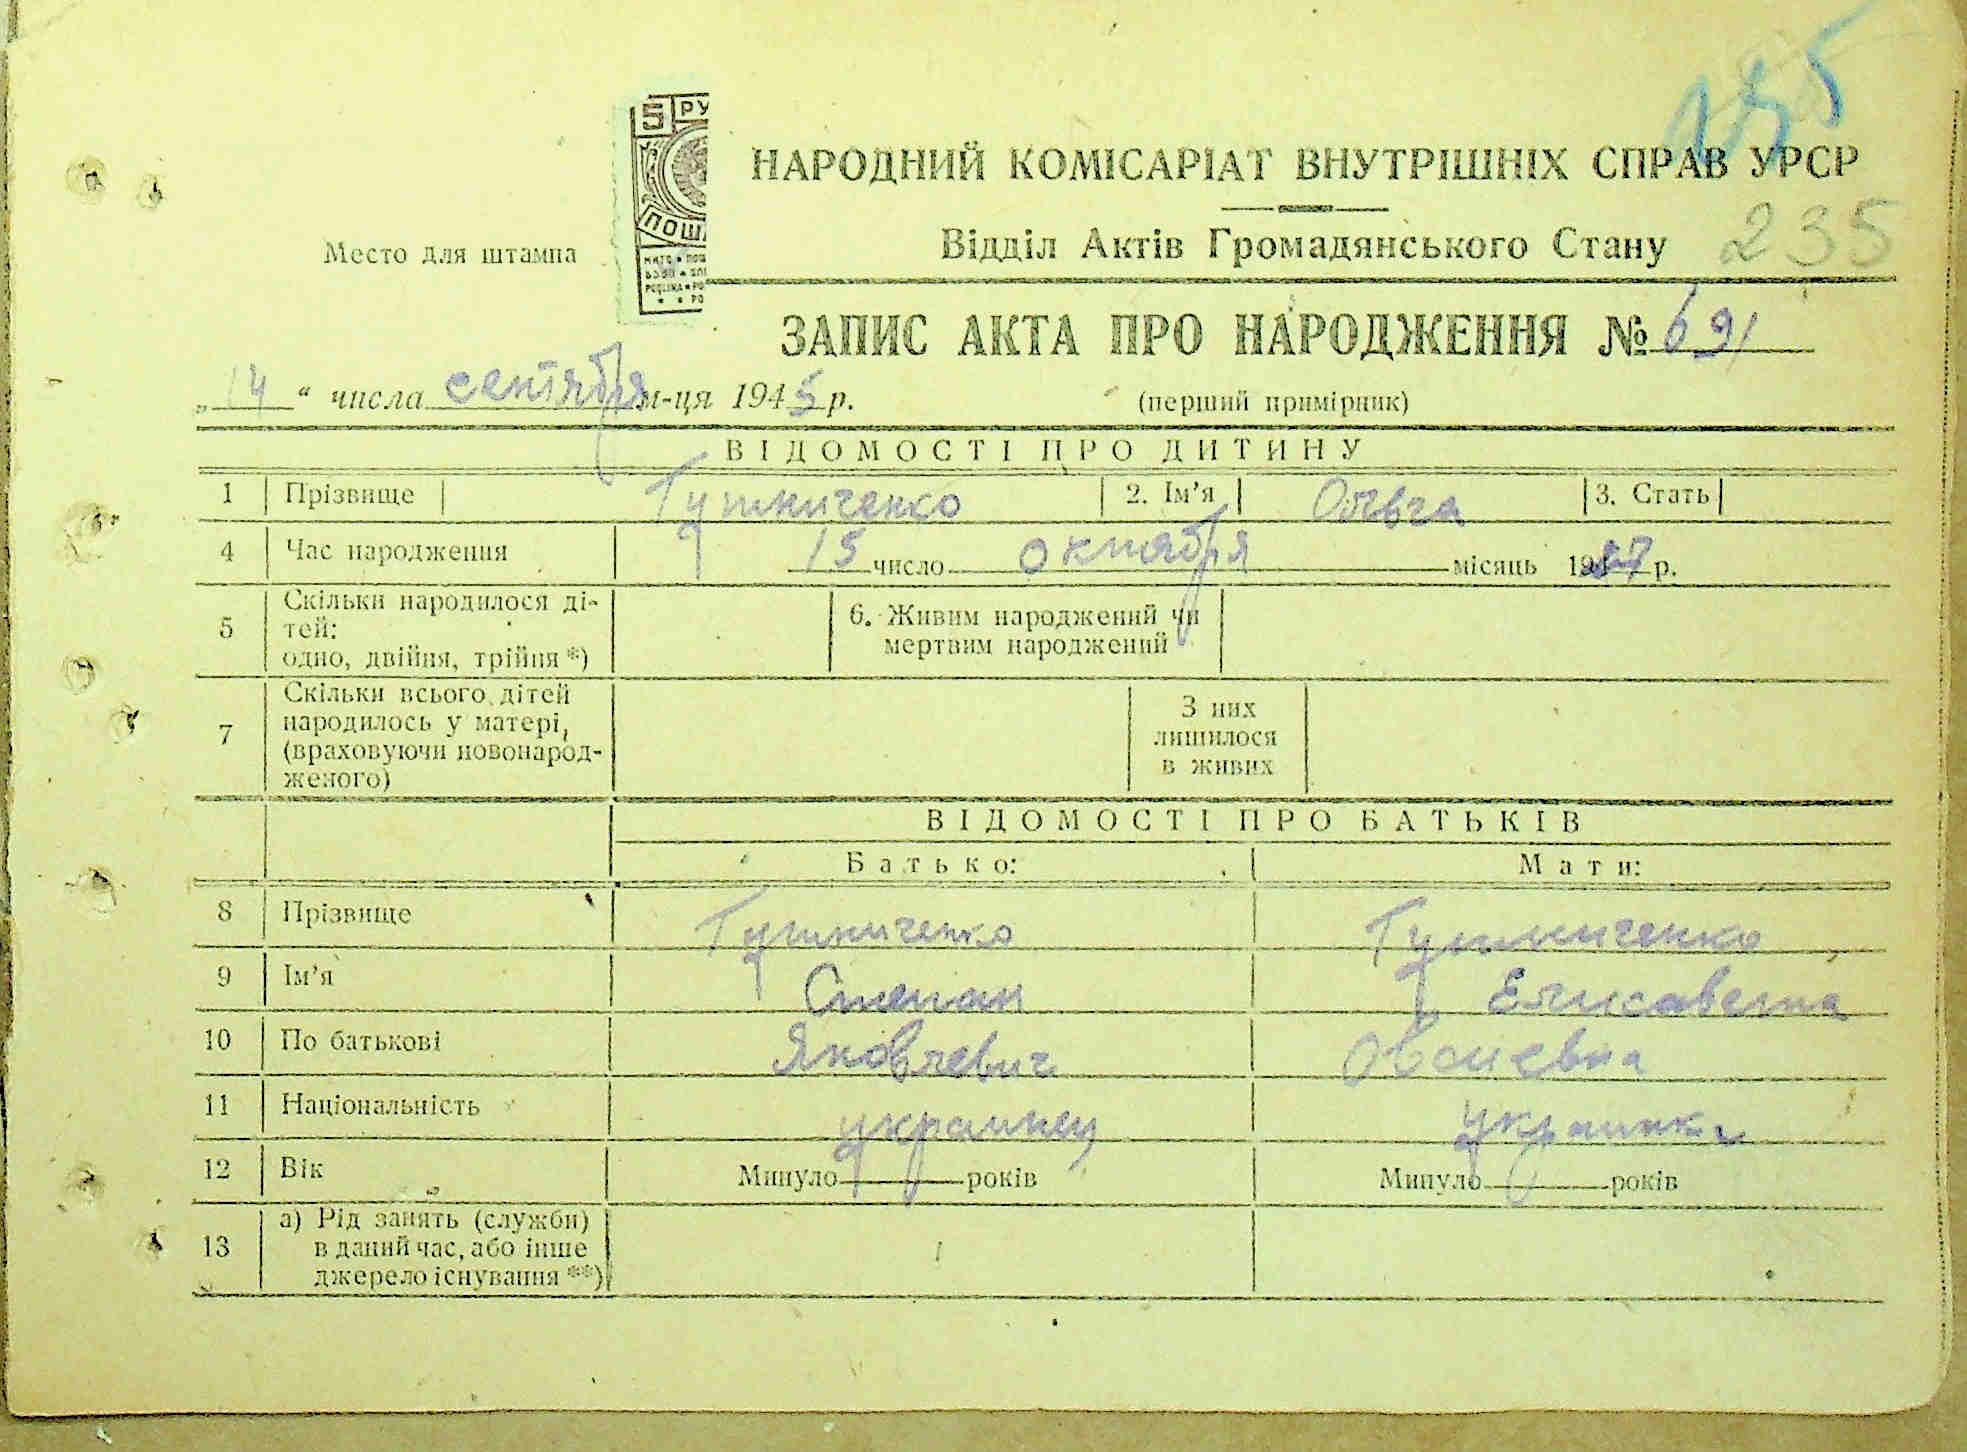 235
НАРОДНИЙ КОМІСАРІАТ ВНУТРІШНІХ СПРАВ УРСР
Место для штампа
5 РУ
ПОШ
Відділ Актів Громадянського Стану 235
ЗАПИС АКТА ПРО НАРОДЖЕННЯ № 691
„14“ числа сентября м-ця 1945 р. (перший примірник)
ВІДОМОСТІ ПРО ДИТИНУ
1 Прізвище 2. Ім’я Ольга 3. Стать
4 Час народження 15 число октября місяць р.
5 Скільки народилося ді-
тей:
одно, двійня, трійня *) 6. Живим народжений чи
мертвим народжений
7 Скільки всього дітей
народилось у матері,
(враховуючи новонарод-
женого) З них
лишилося
в живих
ВІДОМОСТІ ПРО БАТЬКІВ
Батько: Мати:
8 Прізвище
9 Ім’я Степан Елисавета
10 По батькові Яковлевич Овсиевна
11 Національність украинец украинка
12 Вік Минуло років Минуло років
13 а) Рід занять (служби)
в даний час, або інше
джерело існування **)